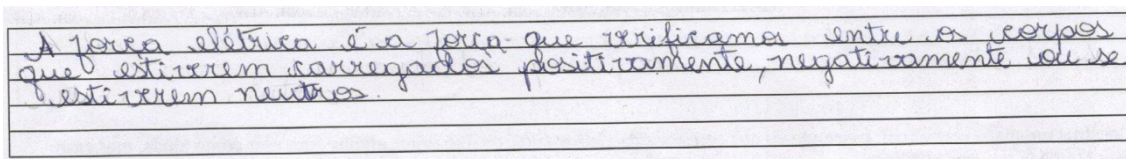 A força elétrica é a força que verificamos entre os corpos
que estiverem carregados positivamente, negativamente ou se
estiverem neutros.